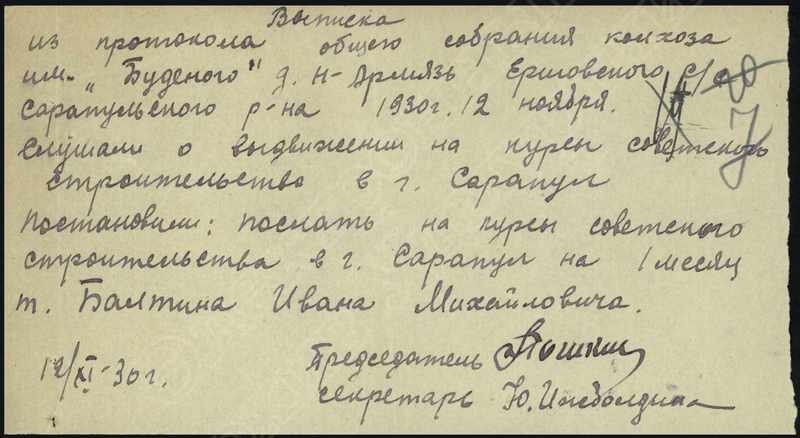 Выписка
из протокола общего собрания колхоза
им. „Буденого" д. Н-Армязь Ершовского с/с
Сарапульского р-на 1930г. 12 ноября.
Слушали о выдвижении на курсы советского
строительство в г. Сарапул
Постановили: послать на курсы советского
строительства в г. Сарапул на 1 месяц
т. Балтина Ивана Михайловича.
12/XI-30г. Председатель
секретарь Ю. Ижболдина